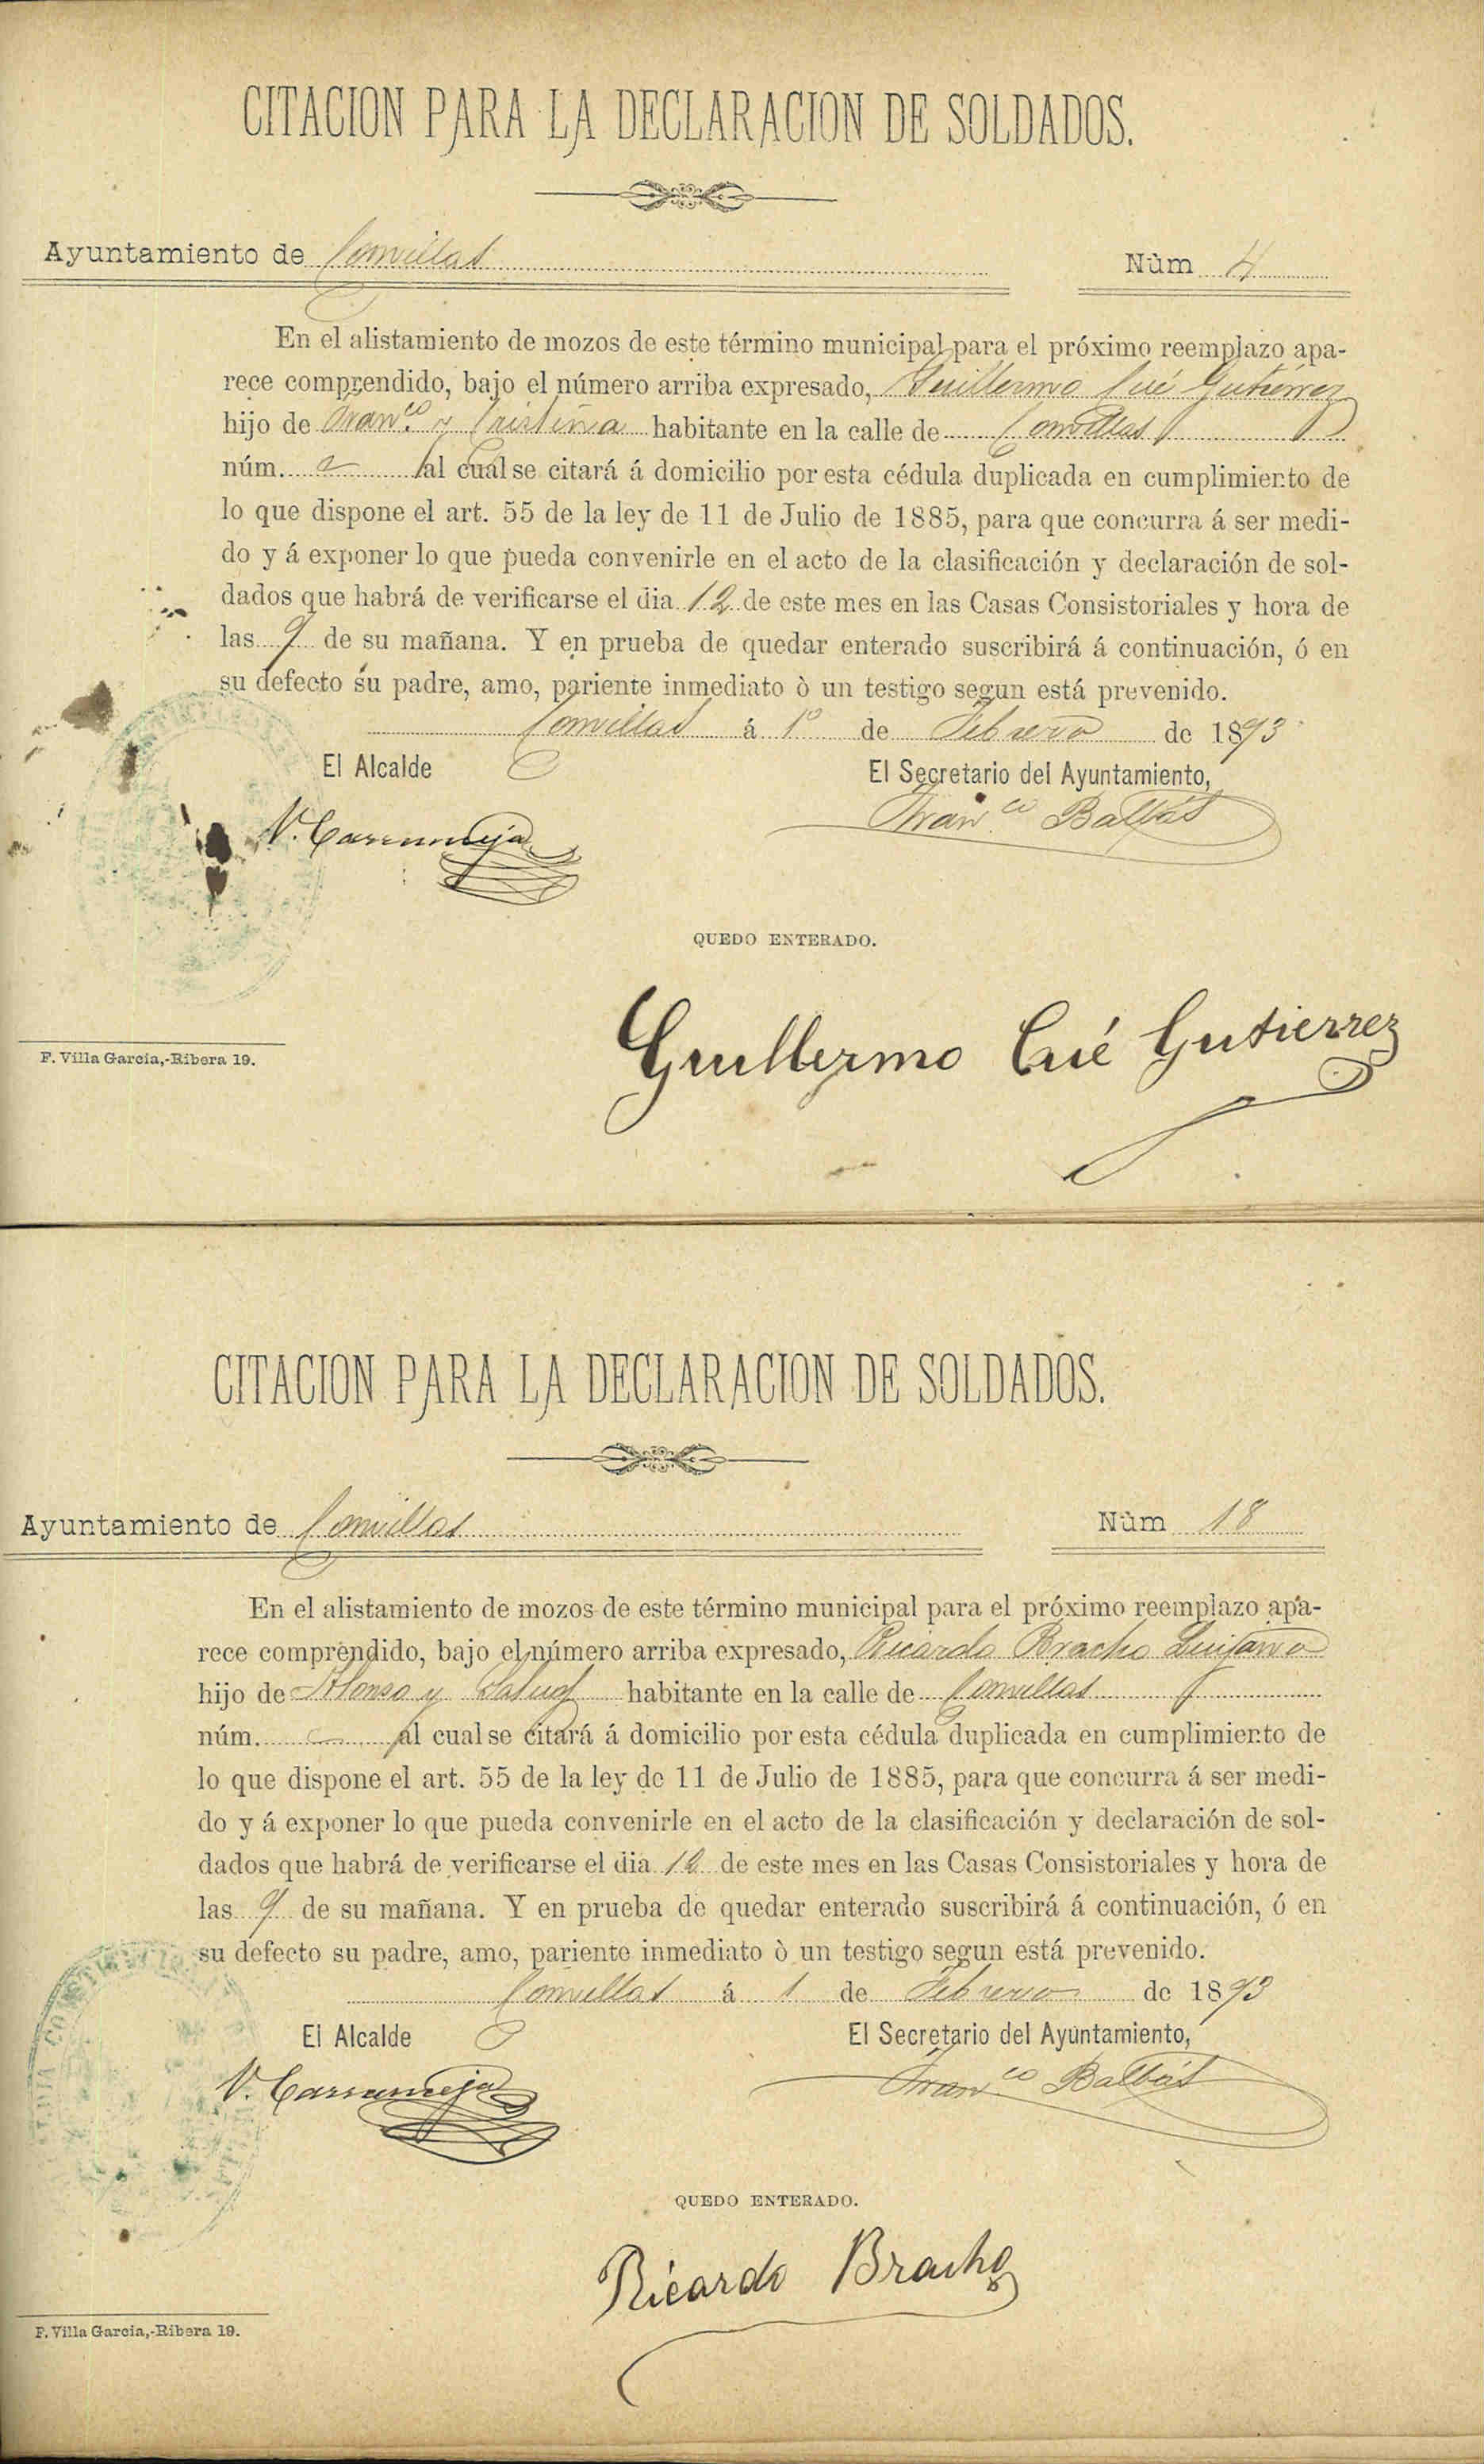 CITACION PARA LA DECLARACION DE SOLDADOS.
Ayuntamiento de Comillas Núm 4
En el alistamiento de mozos de este término municipal para el próximo reemplazo apa-
rece comprendido, bajo el número arriba expresado, Guillermo Cué Gutiérrez
hijo de Fran.co y Cristina habitante en la calle de Comillas
núm. al cual se citará á domicilio por esta cédula duplicada en cumplimiento de
lo que dispone el art. 55 de la ley de 11 de Julio de 1885, para que concurra á ser medi-
do y á exponer lo que pueda convenirle en el acto de la clasificación y declaración de sol-
dados que habrá de verificarse el dia 12 de este mes en las Casas Consistoriales y hora de
las 9 de su mañana. Y en prueba de quedar enterado suscribirá á continuación, ó en
su defecto su padre, amo, pariente inmediato ò un testigo segun está prevenido.
Comillas á 1º de Febrero de 1893
El Alcalde El Secretario del Ayuntamiento,
V. Carrumeja Fran.co Balbás
QUEDO ENTERADO.
Guillermo Cué Gutierrez
F. Villa García,-Ribera 19.
CITACION PARA LA DECLARACION DE SOLDADOS.
Ayuntamiento de Comillas Núm 18
En el alistamiento de mozos de este término municipal para el próximo reemplazo apa-
rece comprendido, bajo el número arriba expresado, Ricardo Bracho Quijano
hijo de Alonso y Salud habitante en la calle de Comillas
núm. al cual se citará á domicilio por esta cédula duplicada en cumplimiento de
lo que dispone el art. 55 de la ley de 11 de Julio de 1885, para que concurra á ser medi-
do y á exponer lo que pueda convenirle en el acto de la clasificación y declaración de sol-
dados que habrá de verificarse el dia 12 de este mes en las Casas Consistoriales y hora de
las 9 de su mañana. Y en prueba de quedar enterado suscribirá á continuación, ó en
su defecto su padre, amo, pariente inmediato ò un testigo segun está prevenido.
Comillas á 1 de Febrero de 1893
El Alcalde El Secretario del Ayuntamiento,
V. Carrumeja Fran.co Balbás
QUEDO ENTERADO.
Ricardo Bracho
F. Villa García,-Ribera 19.